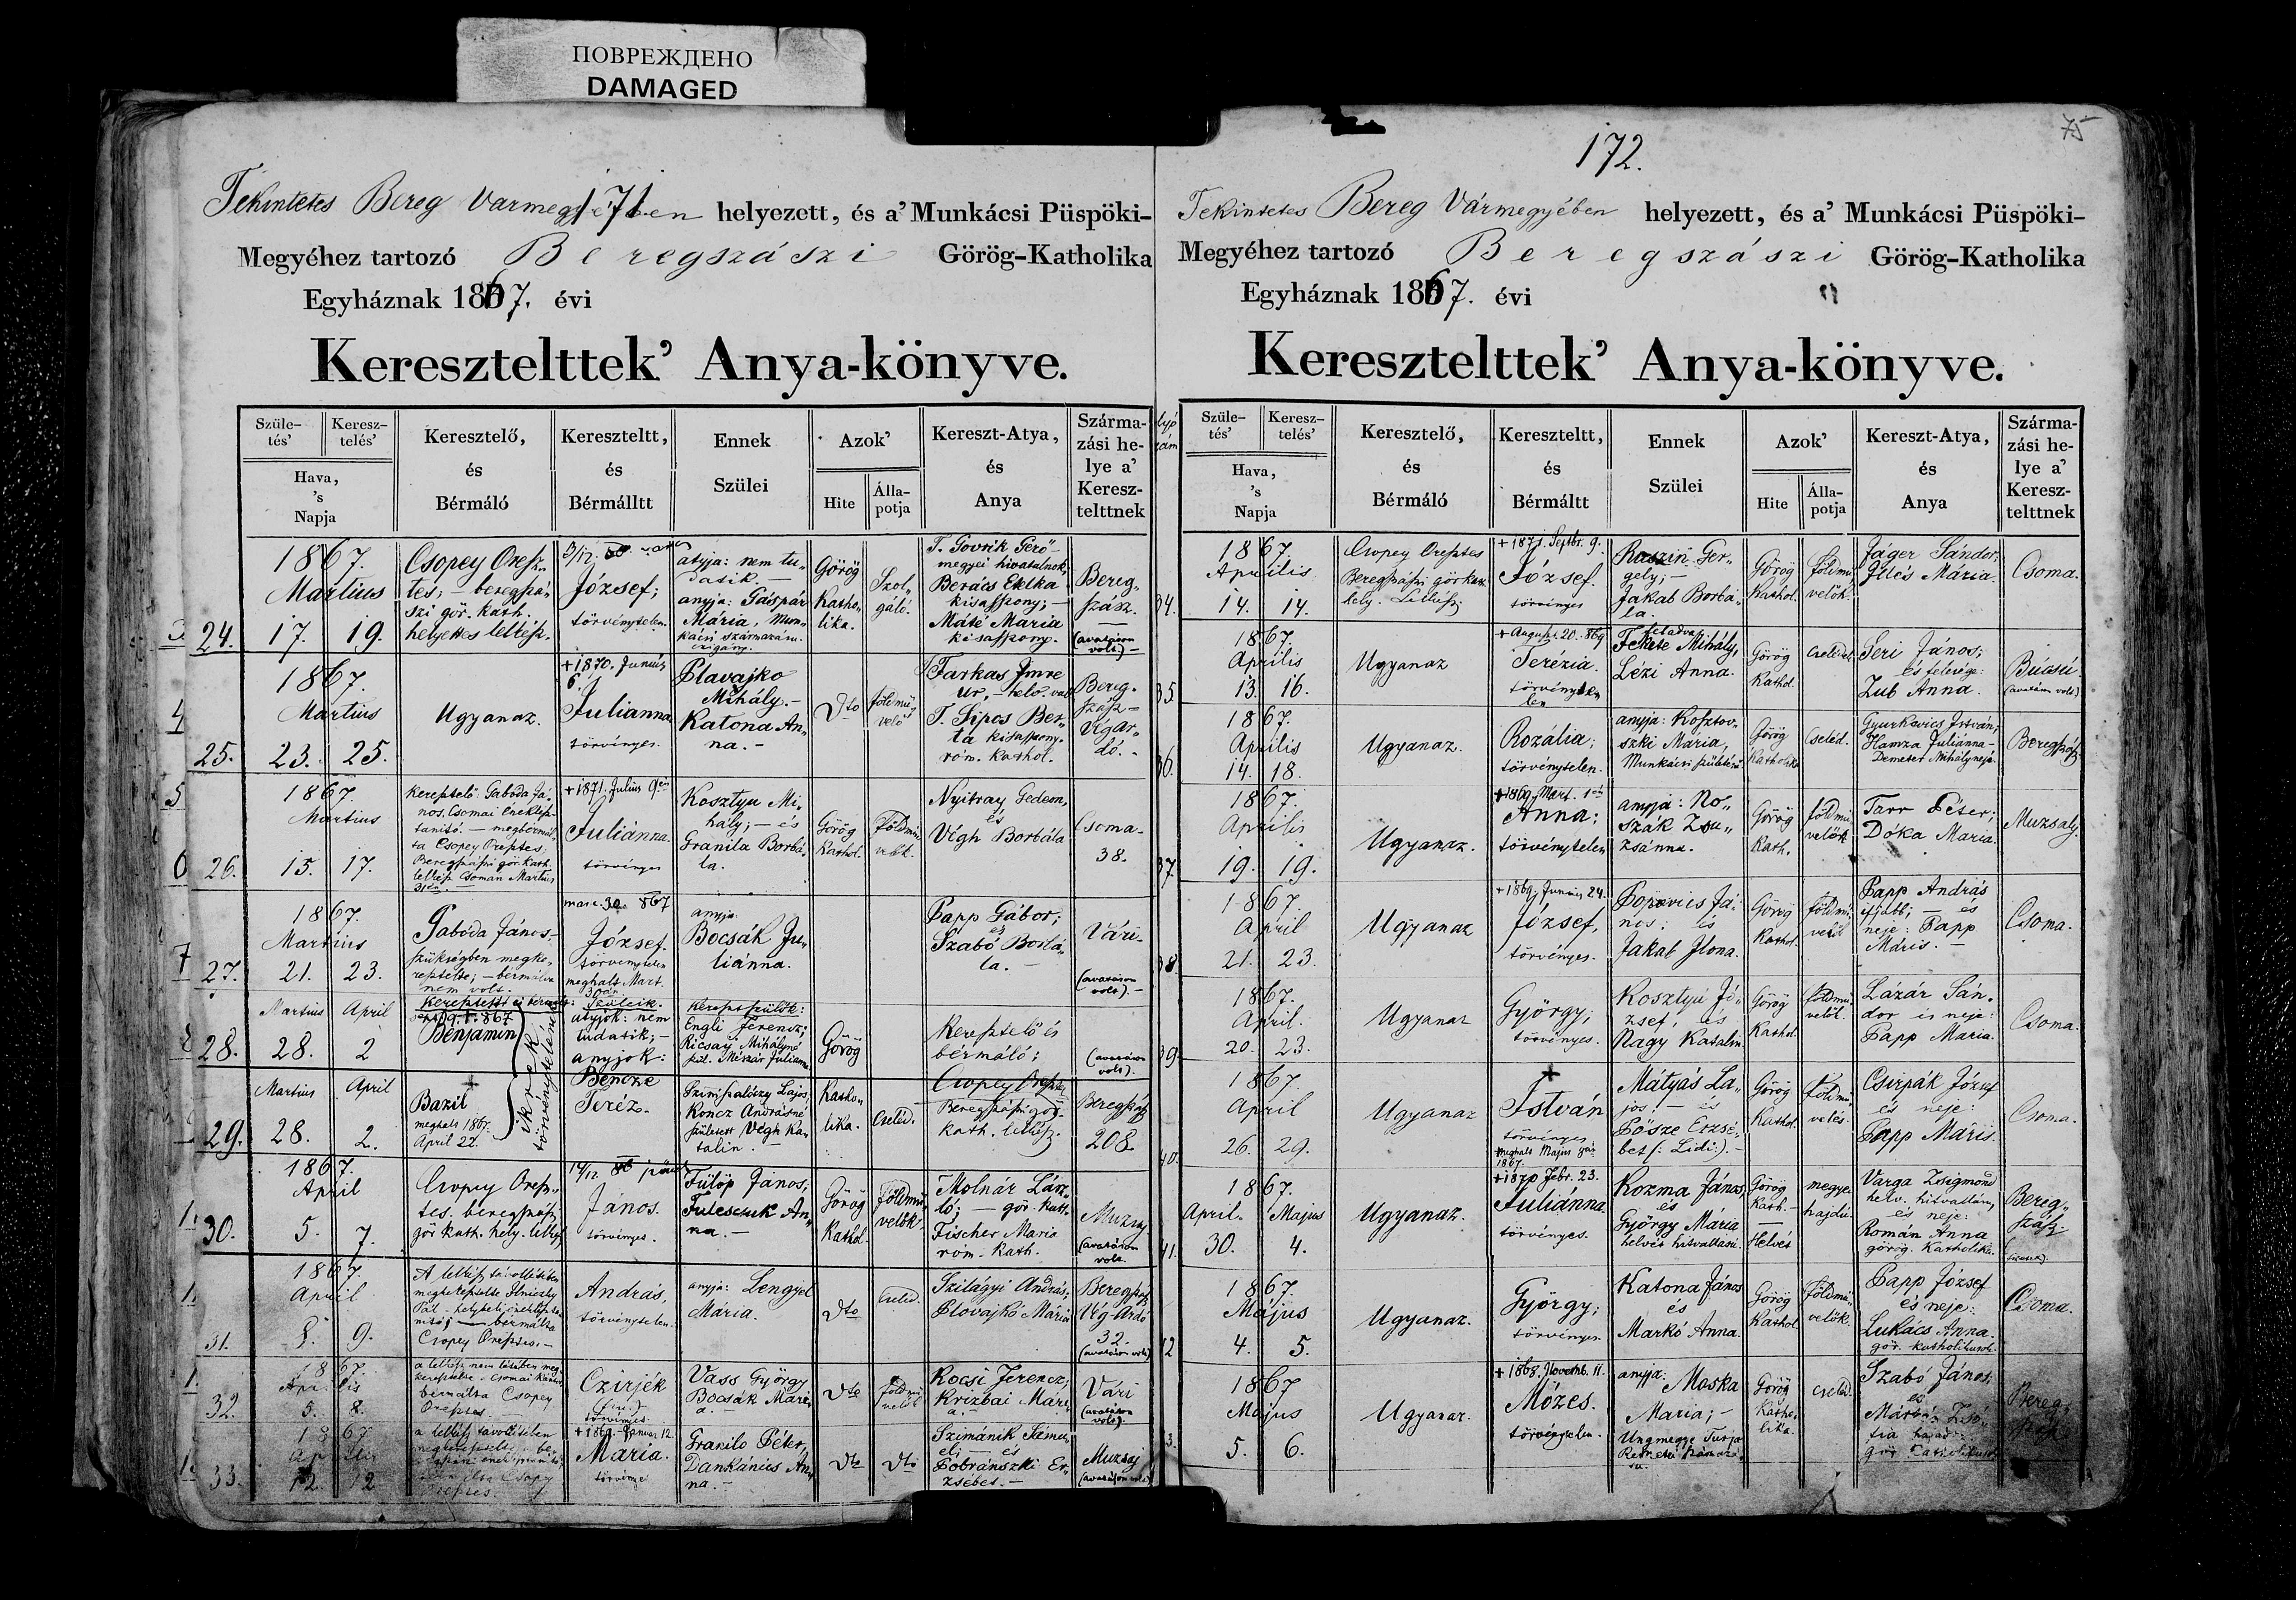 ПОВРЕЖДЕНО
DAMAGED
171
Tekintetes Bereg Vármegyében helyezett, és a' Munkácsi Püspöki-
Megyéhez tartozó Beregszászi Görög-Katholika
Egyháznak 1867. évi
Keresztelttek' Anya-könyve.
Szüle-
tés'
Keresz-
telés'
Hava,
's
Napja
Keresztelő,
és
Bérmáló
Kereszteltt,
és
Bérmálltt
Ennek
Szülei
Azok'
Hite
Álla-
potja
Kereszt-Atya,
és
Anya
Szárma-
zási he-
lye a'
Keresz-
telttnek
24.
1867.
Martius
17. 19.
Csopey Oresz-
tes; - beregszá-
szi gör. kath.
helyettes lelkész.
József;
törvénytelen.
atyja: nem tu-
datik. -
anyja: Gáspár
Mária, Mun-
kácsi származásu
czigány.
Görög
Katho-
lika.
Szol-
gáló.
megyei hivatalnok
kisasszony; -
Máté Maria
kisasszony.
Bereg-
szász.
(avatáson
volt.) -
25.
1867.
Martius
23. 25.
Ugyanaz.
+ 1870. Junius
6.
Julianna
törvényes.
Plavajko
Mihály. -
Katona An-
na. -
Dto
földmü-
velő
Farkas Imre
T. Sipos Ber-
ta kisasszony.
róm. kathol.
Bereg-
szász -
Végar-
dó. -
26.
1867.
Martius
15. 17.
Keresztelő: Gabóda Já-
nos, Csomai énekész
tanitó. - megbérmál-
ta Csopey Oresztes,
Beregszászi gör. kath.
lelkész Csomán Martius
31én. -
+ 1871. Julius 9én
Juliánna.
törvényes
Kosztyu Mi-
hály; - és
Granila Borbá-
la.
Görög
Kathol.
Földmü-
velők.
Nyitray Gedeon,
és
Végh Borbála
Csoma -
38.
27.
1867.
Martius
21. 23.
Gabóda János, -
szükségben megke-
resztelte; - bérmálva
nem volt.
marc. 30. 867
József.
törvénytelen
meghalt Mart.
30án
anyja:
Bocsák Ju-
liánna.
Papp Gábor;
és
Szabó Borbá-
la. -
Vári -
(avatáson
volt). -
28.
Martius April
28. 2
Benjamin
ikrek
törvénytelenek
Szüleik.
atyjok: nem
tudatik; -
anyjok:
Bencze
Teréz.
keresztszülők:
Engli Ferencz;
Ricsay Mihályné
szül. Mészár Julianna
Görög
Keresztelő és
bérmáló;
(avatáson
volt).
29.
Martius April
28. 2.
Bazil
meghalt 1867.
April 22.
Koncz Andrásné
született Végh Ka-
talin.
Katho-
lika.
Cseléd.
Csopey Oresztes
Beregszászi gör.
kath. lelkész.
Beregszász
208
30.
1867.
April
5. 7.
Csopey Oresz-
tes. beregszászi
gör kath. hely. lelkész
János.
törvényes.
Fülöp János,
An-
na. -
Görög
Kathol.
Földmü-
velők.
Molnár Lász-
ló; - gör. kath.
Fischer Maria
rom. kath.
Muzsaj
(avatáson
volt.
31.
1867.
April
8. 9.
A lelkész távollétében
megkeresztelte Ilniczky
Pál - helybeli éneklész ta-
nitó; - bérmálta
Csopey Oresztes. -
András,
törvénytelen.
anyja: Lengyel
Mária.
Dto
cseléd.
Szilágyi András;
Plovajkó Mária
Beregszász
Vég-Ardó
32.
(avatáson volt)
32.
1867.
Aprilis
5. 8.
bérmálta Csopey
Oresztes.
Czirjék
törvényes.
Vass György
Bocsák Mari-
a. -
Dto
földmü-
velők
Kocsi Ferencz;
Krizbai Mári-
a. -
Vári
(avatáson
volt).
33.
1867
Aprilis
12. 12
a lelkész távollétében
+ 1869. Januar 12.
Maria.
törvényes
Granilo Péter,
Dankánics An-
na. -
Dto
Dto
Szimánik Sámu-
el; - és
Dobránszki Er-
zsébet. -
Muzsaj
(avatáson volt)
75
172.
Tekintetes Bereg Vármegyében helyezett, és a' Munkácsi Püspöki-
Megyéhez tartozó Beregszászi Görög-Katholika
Egyháznak 1867. évi
Keresztelttek' Anya-könyve.
Szüle-
tés'
Keresz-
telés'
Hava,
's
Napja
Keresztelő,
és
Bérmáló
Kereszteltt,
és
Bérmáltt
Ennek
Szülei
Azok'
Hite
Álla-
potja
Kereszt-Atya,
és
Anya
Szárma-
zási he-
lye a'
Keresz-
telttnek
34.
1867.
Aprilis
14. 14.
Csopey Oresztes
Beregszászi gör kath.
hely. Lelkész;
+ 1871. Septbr. 9.
József.
törvényes
Ger-
gely; -
Jakab Borbá-
la.
Görög
Kathol.
földmü-
velők.
Jáger Sándor;
Illés Mária.
Csoma.
35.
1867.
Aprilis
13. 16.
Ugyanaz
+ August. 20. 869
Terézia.
törvénytelen
Fekete Mihály,
Lézi Anna.
Görög
Kathol.
Cselédek
Seri János;
és felesége:
Zub Anna.
Bucsu
(avatáson volt)
36.
1867.
Aprilis
14. 18.
Ugyanaz.
Rozália;
törvénytelen.
anyja: Kosztov-
szki Mária,
Munkácsi születésü
Görög
Katholika
cseléd.
Gyurkovics István;
Hamza Juliánna -
Demeter Mihály neje
Beregszász
37.
1867.
Aprilis
19. 19.
Ugyanaz.
+ 1869. Mart. 1én
Anna;
törvénytelen
anyja: No-
szák Zsu-
zsánna.
Görög
Kath.
földmü-
velők
Tarr Péter;
Dóka Maria.
Muzsaly
38.
1867.
April
21. 23.
Ugyanaz
+ 1869. Junius 24.
József,
törvényes.
Popovics Já-
nos; és
Jakab Ilona.
Görög
Kathol.
földmü-
velők
Papp András
ifjabb; - és
neje: Papp
Máris. -
Csoma.
39.
1867.
April.
20. 23.
Ugyanaz
György;
törvényes.
Kosztyu Jó-
zsef, és
Nagy Katalin
Görög
Kathol.
földmü-
velők.
Lázár Sán-
dor és neje:
Papp Maria.
Csoma.
40.
1867.
April
26. 29.
Ugyanaz
+
István
törvényes
1867.
Mátyás La-
jos; - és
Pősze Erzsé-
bet (: Lidi:). -
Görög
Kathol.
földmü-
velés.
Csirpák József
és neje:
Papp Maris.
Csoma.
41.
1867.
April. Majus
30. 4.
Ugyanaz.
+ 1870 Febr. 23.
Juliánna
törvényes.
Kozma János,
és
György Mária
helvét hitvallásu.
Görög
Kath.
-
Helvét
megyei
hajdú
Varga Zsigmond
helv. hitvallásu,
és neje:
Román Anna
görög. Katholika.
Bereg-
szász.
42
1867.
Május
4. 5.
Ugyanaz.
György;
törvényes.
Katona János
és
Markó Anna.
Görög
Kathol
Földmü-
velők.
Papp József
és neje:
Lukács Anna.
gör. katholikusok.
Csoma.
1867
Május
5. 6.
Ugyanaz.
+ 1868. Novemb. 11.
Mózes.
törvénytelen.
anyja:
Maska
Maria; -
Görög
Katho-
lika.
cseléd.
Szabó János,
és
Bereg-
szász